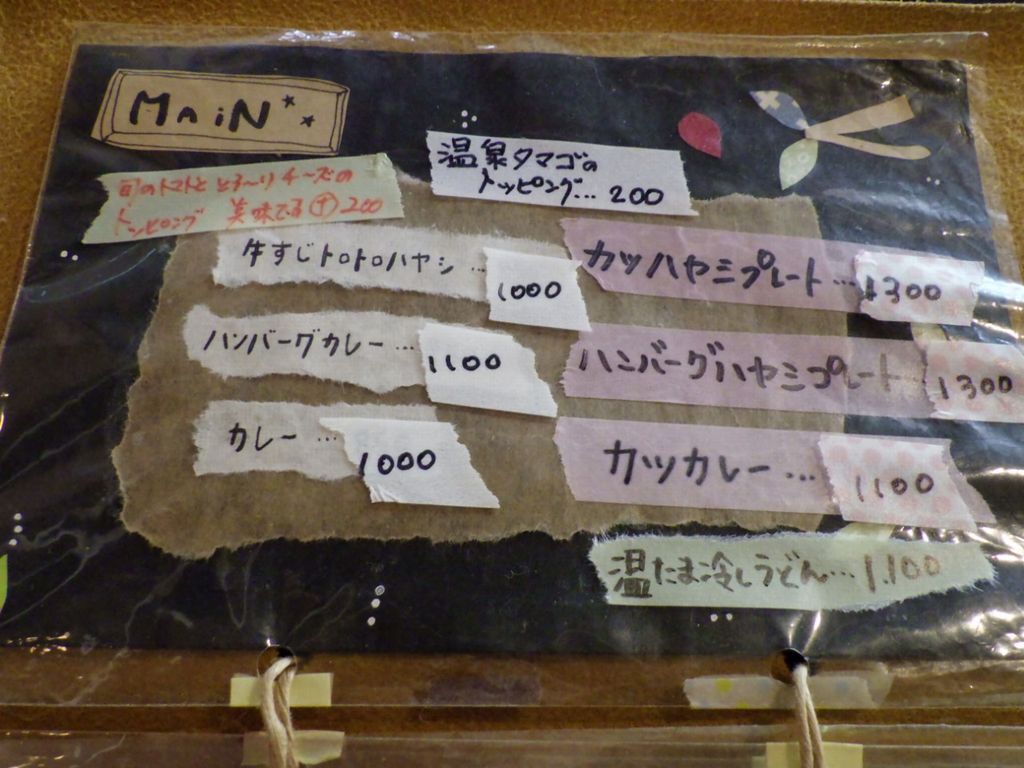 MAiN
温泉タマゴの
トッピング…200
旬のトマトと とろ〜りチーズの
トッピング 美味である ㊉200
牛すじトロトロハヤシ…1000
ハンバーグカレー…1100
カレー…1000
カツハヤシプレート…1300
ハンバーグハヤシプレート 1300
カツカレー…1100
温たま冷しうどん…1.100